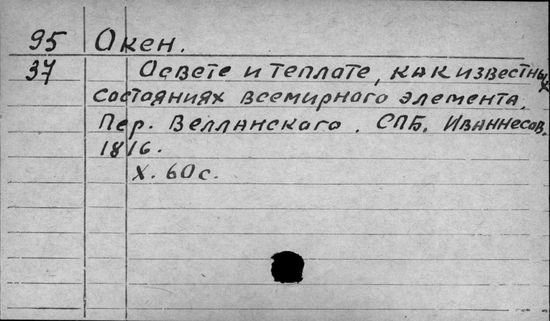 95 Окен.
37 Освете и теплате, как известны
х
состояниях всемирного элемента.
Пер. Велланскаго. СПБ. Иваннесов.
1816.
X. 60 с.